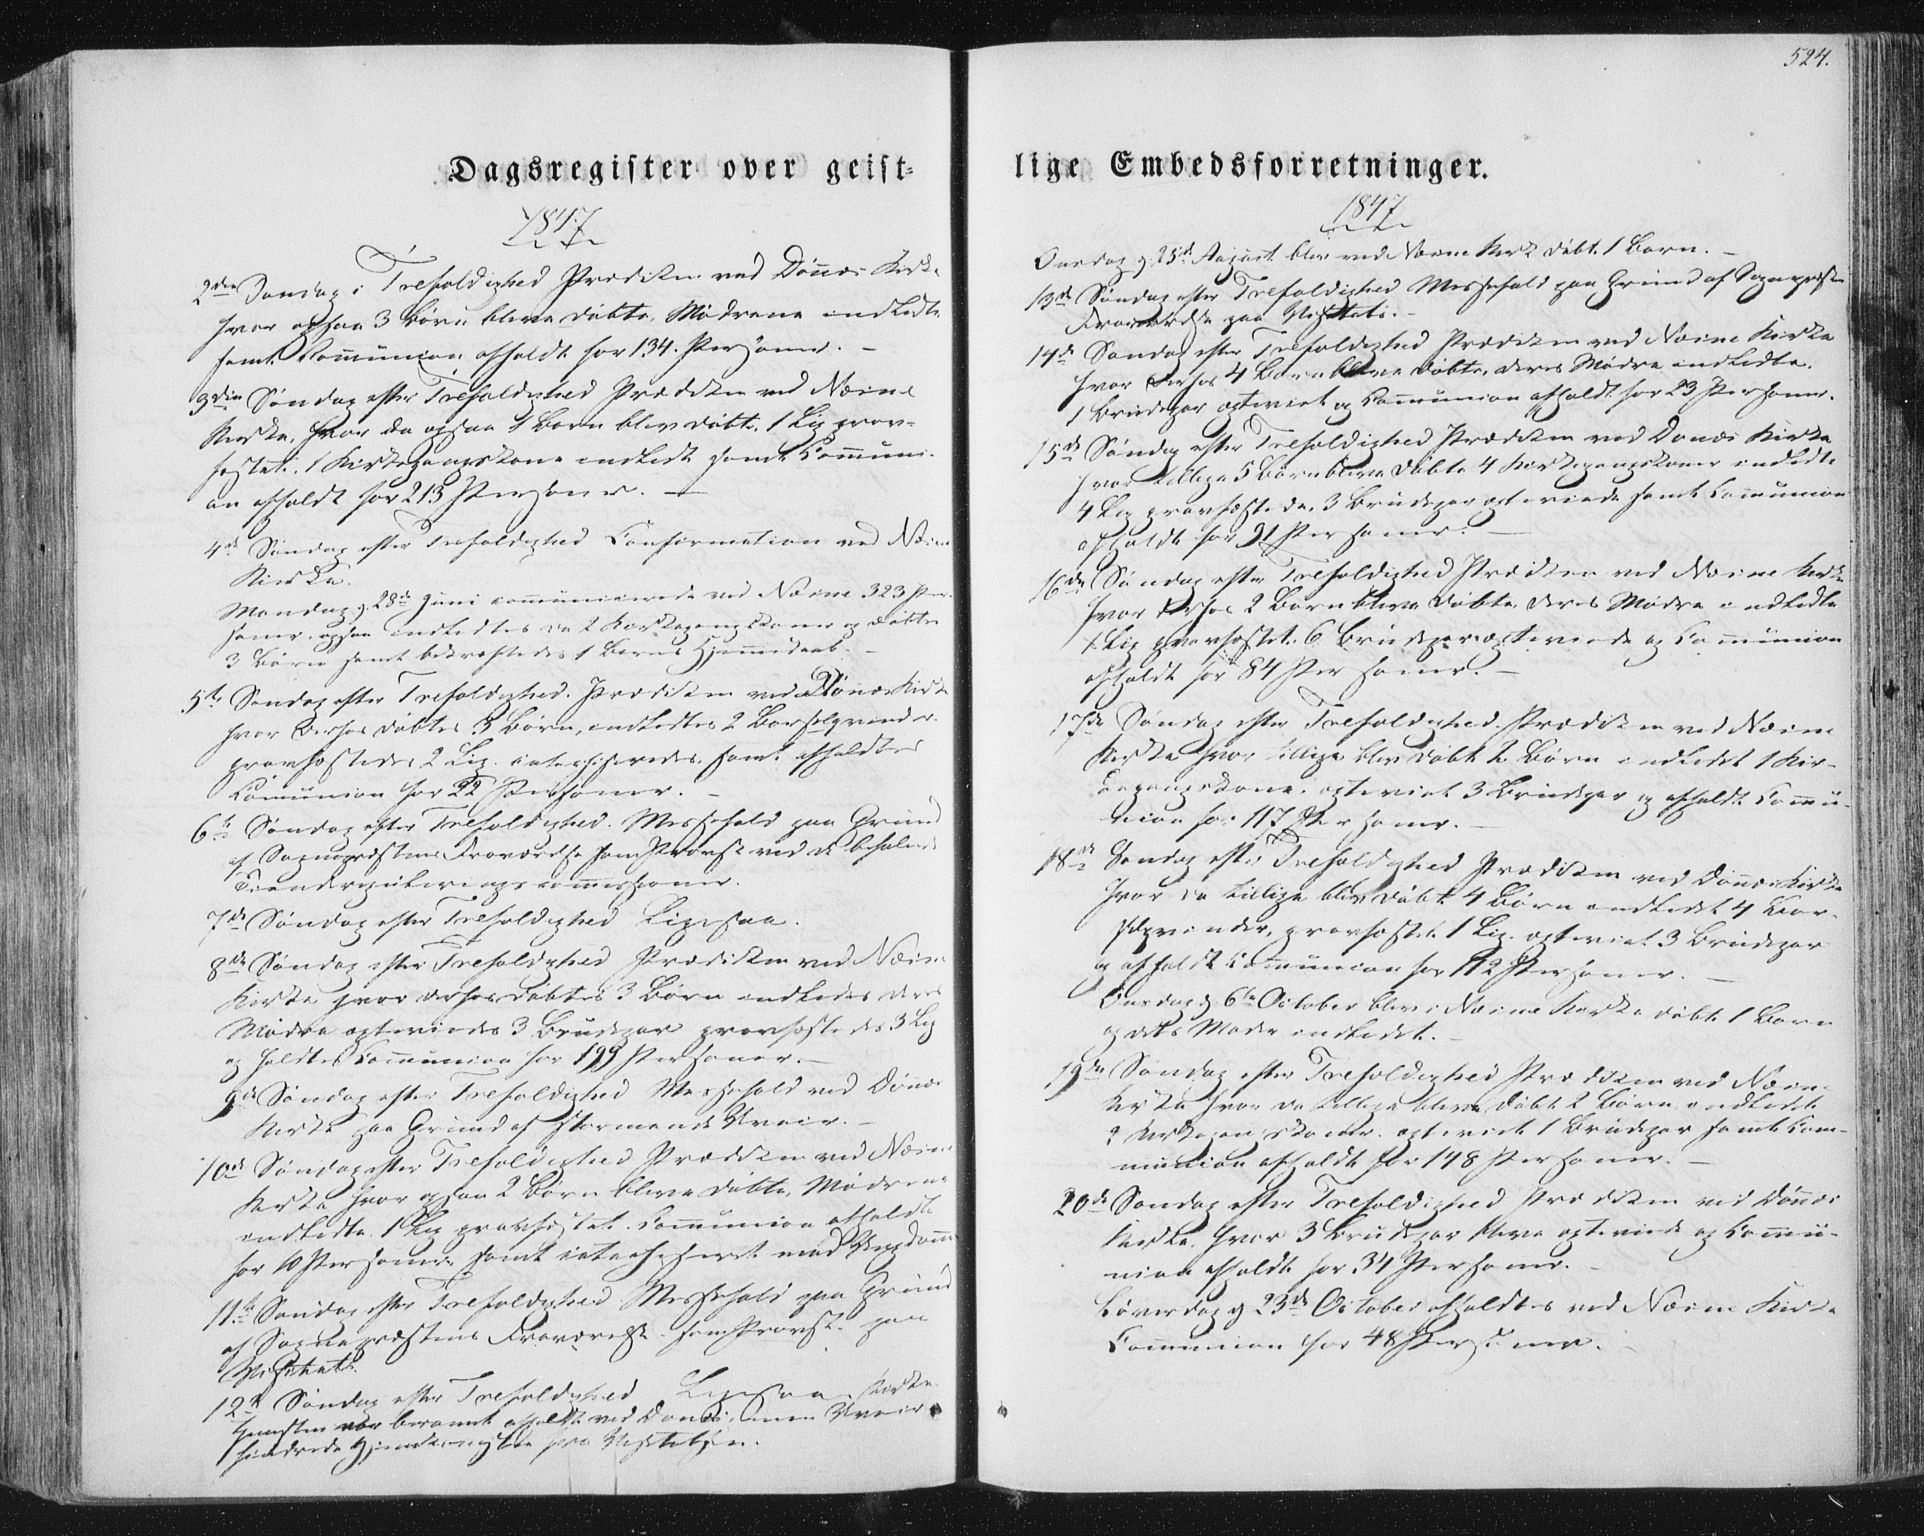 Dagsregister over geist-
1847
2den Søndag i Trefoldighed Prædiken ved Dønnes Kirke
hvor ogsaa 3 Børn bleve døbte, Mødrene indledte
samt Communion afholdt for 134 Personer. –
3die Søndag efter Trefoldighed Prædiken ved Næsne
Kirke, hvor da ogsaa 1 Barn blev døbt, 1 Lig jord-
fæstet, 1 Kirkegangskone indledt samt Communi-
on afholdt for 213 Personer. –
4de Søndag efter Trefoldighed Confirmation ved Næsne
Kirke.
Mandag d. 28de Juni communicerede ved Næsne 323 Per-
soner, ogsaa indledtes 2 Kirkegangskoner og døbtes
3 Børn samt bekræftedes 1 Barns Hjemmedaab. –
5te Søndag efter Trefoldighed. Prædiken ved Dønnes Kirke
hvor derhos døbtes 3 Børn, indledtes 2 Barselqvinder
jordfæstedes 2 Lig, catechiseredes, samt afholdtes
Communion for 22 Personer. –
6te Søndag efter Trefoldighed. Messefald paa Grund
af Sognepræstens Fraværelse som Provst ved de befalede
7de Søndag efter Trefoldighed Ligesaa.
8de Søndag efter Trefoldighed Prædiken ved Næsne
Kirke hvor derhos døbtes 3 Børn indledes deres
Mødre ægteviedes 3 Brudepar jordfæstedes 3 Lig
og holdtes Communion for 199 Personer. –
9de Søndag efter Trefoldighed Messefald ved Dønnes
Kirke paa Grund af stormende Uveir. –
10de Søndag efter Trefoldighed Prædiken ved Næsne
Kirke hvor ogsaa 2 Børn bleve døbte, Mødrene
indledte, 1 Lig jordfæstet, Communion afholdt
for 10 Personer samt catechiseret med Ungdommen
11te Søndag efter Trefoldighed Messefald paa Grund
af Sognepræstens Fraværelse som Provst paa
Visitats.
12te Søndag efter Trefoldighed Ligesaa. Kirke-
tjenesten var berammet afholdt ved Dønnes, men Uveir
hindrede Hjemkomsten fra Visitatsen.
524.
lige Embedsforretninger.
1847
Onsdag d. 25de August blev ved Næsne Kirke døbt 1 Barn. –
13de Søndag efter Trefoldighed Messefald paa Grund af Sognepræstens
Fraværelse paa Visitats. –
14de Søndag efter Trefoldighed Prædiken ved Næsne Kirke
hvor derhos 4 Børn bleve døbte, deres Mødre indledte,
1 Brudepar ægteviet og Communion afholdt for 23 Personer.
15de Søndag efter Trefoldighed Prædiken ved Dønnes Kirke
hvor tillige 5 Børn bleve døbte 4 Kirkegangskoner indledte
4 Lig jordfæstede, 3 Brudepar ægteviede samt Communion
afholdt for 91 Personer. –
16de Søndag efter Trefoldighed Prædiken ved Næsne Kirke
hvor derhos 2 Børn bleve døbte, deres Mødre indledte
1 Lig jordfæstet, 6 Brudepar ægteviede og Communion
afholdt for 84 Personer. –
17de Søndag efter Trefoldighed. Prædiken ved Næsne
Kirke hvor tillige blev døbt 2 Børn indledet 1 Kir-
kegangskone, ægteviet 3 Brudepar og afholdt Commu-
nion for 117 Personer. –
18de Søndag efter Trefoldighed Prædiken ved Dønnes Kirke
hvor da tillige blev døbt 4 Børn indledet 4 Bar-
selqvinder, jordfæstet 1 Lig, ægteviet 3 Brudepar
og afholdt Communion for 112 Personer. –
Onsdag d. 6te October blev i Næsne Kirke døbt 1 Barn
og dets Moder indledet. –
19de Søndag efter Trefoldighed Prædiken ved Næsne
Kirke hvor da tillige bleve døbt 2 Børn, indledet
2 Kirkegangskoner, ægteviet 1 Brudepar samt Com-
munion afholdt for 148 Personer. –
20de Søndag efter Trefoldighed Prædiken ved Dønnes
Kirke, hvor 3 Brudepar bleve ægteviede og Commu-
nion afholdt for 34 Personer. –
Løverdag d. 23de October afholdtes ved Næsne Kirke
Communion for 48 Personer. –